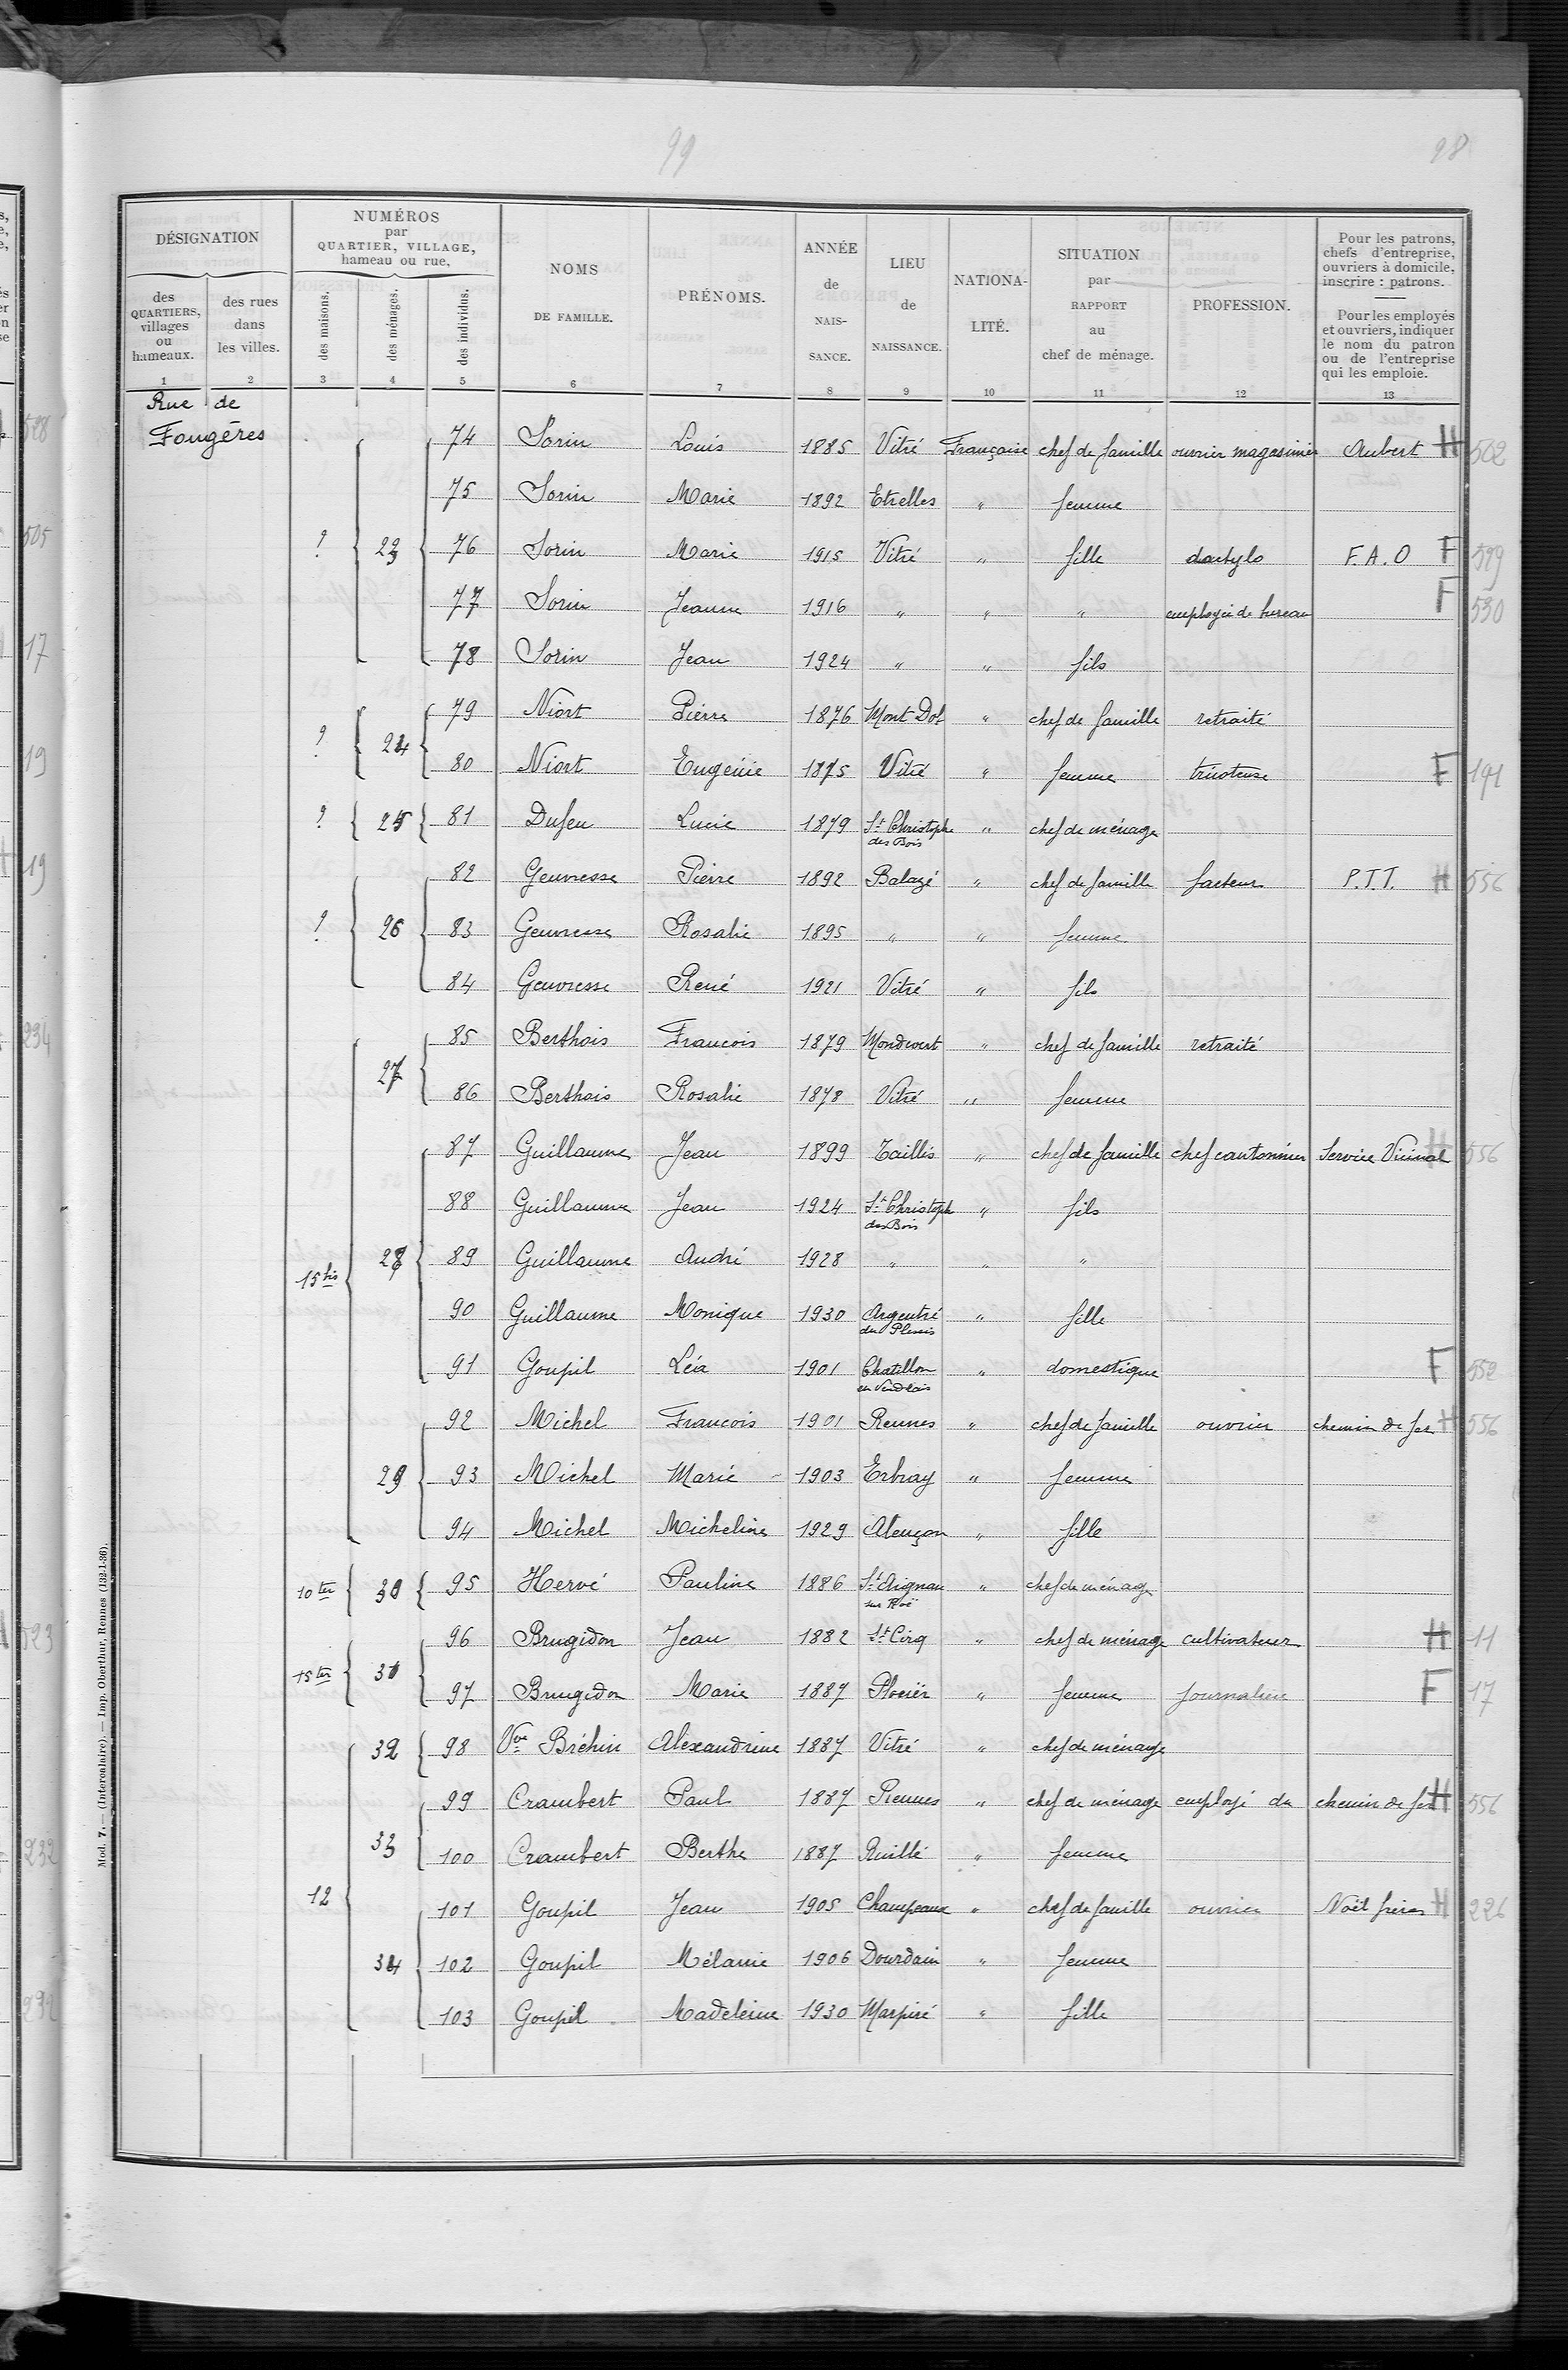 99
98
DÉSIGNATION
NUMÉROS
par
QUARTIER, VILLAGE,
hameau ou rue.
des
QUARTIERS,
villages
ou
hameaux.
des rues
dans
les villes.
des maisons.
des ménages.
des individus.
NOMS
DE FAMILLE.
PRÉNOMS.
ANNÉE
de
NAIS-
SANCE.
LIEU
de
NAISSANCE.
NATIONA-
LITÉ.
SITUATION
par
RAPPORT
au
chef de ménage.
PROFESSION.
Pour les patrons,
chefs d'entreprise,
ouvriers à domicile,
inscrire : patrons.
Pour les employés
et ouvriers, indiquer
le nom du patron
ou de l'entreprise
qui les emploie.
1 2 3 4 5 6 7 8 9 10 11 12 13
Rue de
Fougères
74 Sorin Louis 1885 Vitré Française chef de famille ouvrier magasinier Aubert H 502
75 Sorin Marie 1892 Etrelles " femme
? 23 76 Sorin Marie 1915 Vitré " fille dactylo F.A.O F 599
77 Sorin Jeanne 1916 " " " employée de bureau F 530
78 Sorin Jean 1924 " " fils
79 Niort Pierre 1876 Mont Dol " chef de famille retraité
? 24
80 Niort Eugénie 1875 Vitré " femme tricoteuse F 191
? 25 81 Dufeu Lucie 1879 St Christophe des Bois " chef de ménage
82 Geuvresse Pierre 1892 Balazé " chef de famille facteur P.T.T. H 556
? 26 83 Geuvresse Rosalie 1895 " " femme
84 Geuvresse René 1921 Vitré " fils
85 Berthois Francois 1879 " chef de famille retraité
27
86 Berthois Rosalie 1878 Vitré " femme
87 Guillaume Jean 1899 Taillis " chef de famille chef cantonnier Service Vicinal H 556
88 Guillaume Jean 1924 St Christoph des Bois " fils
15 bis 28 89 Guillaume André 1928 " " "
90 Guillaume Monique 1930 Argentré du Plessis " fille
91 Goupil Léa 1901 Chatillon en Vendelais " domestique F 552
92 Michel Francois 1901 Rennes " chef de famille ouvrier chemin de fer H 556
29 93 Michel Marie 1903 Erbray " femme
94 Michel Micheline 1929 Alençon " fille
10 ter 30 95 Hervé Pauline 1886 St Aignan sur Roë " chef de ménage
96 Brugidon Jean 1882 St Cirq " chef de ménage cultivateur H 11
15 ter 31
97 Brugidon Marie 1887 " femme F 17
32 98 Vve Bréhin Alexandrine 1887 Vitré " chef de ménage
99 Crambert Paul 1887 Rennes " chef de ménage employé du chemin de fer H 556
33
100 Crambert Berthe 1887 Ruillé " femme
12
101 Goupil Jean 1905 Champeaux " chef de famille ouvrier Noël frères H 226
34 102 Goupil Mélanie 1906 Dourdain " femme
103 Goupil Madeleine 1930 Marpiré " fille
Mod. 7. — (Intercalaire). — Imp. Oberthur, Rennes (132-1-36).